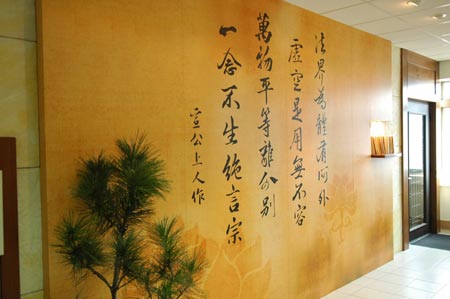 法界為體有何外
虛空是用無不容
萬物平等離分別
一念不生絕言宗
宣公上人作